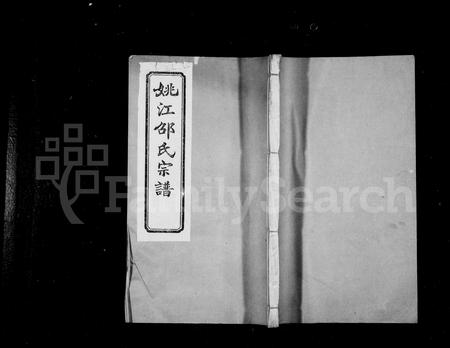 姚江邵氏宗譜
FamilySearch